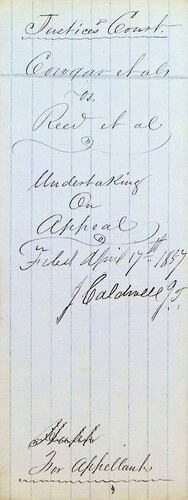 Justice's Court.
Cowgar et als
vs.
Reed et al
Undertaking
On
Appeal
Filed April 17th 1857
J Caldwell J.P.
For Appellants